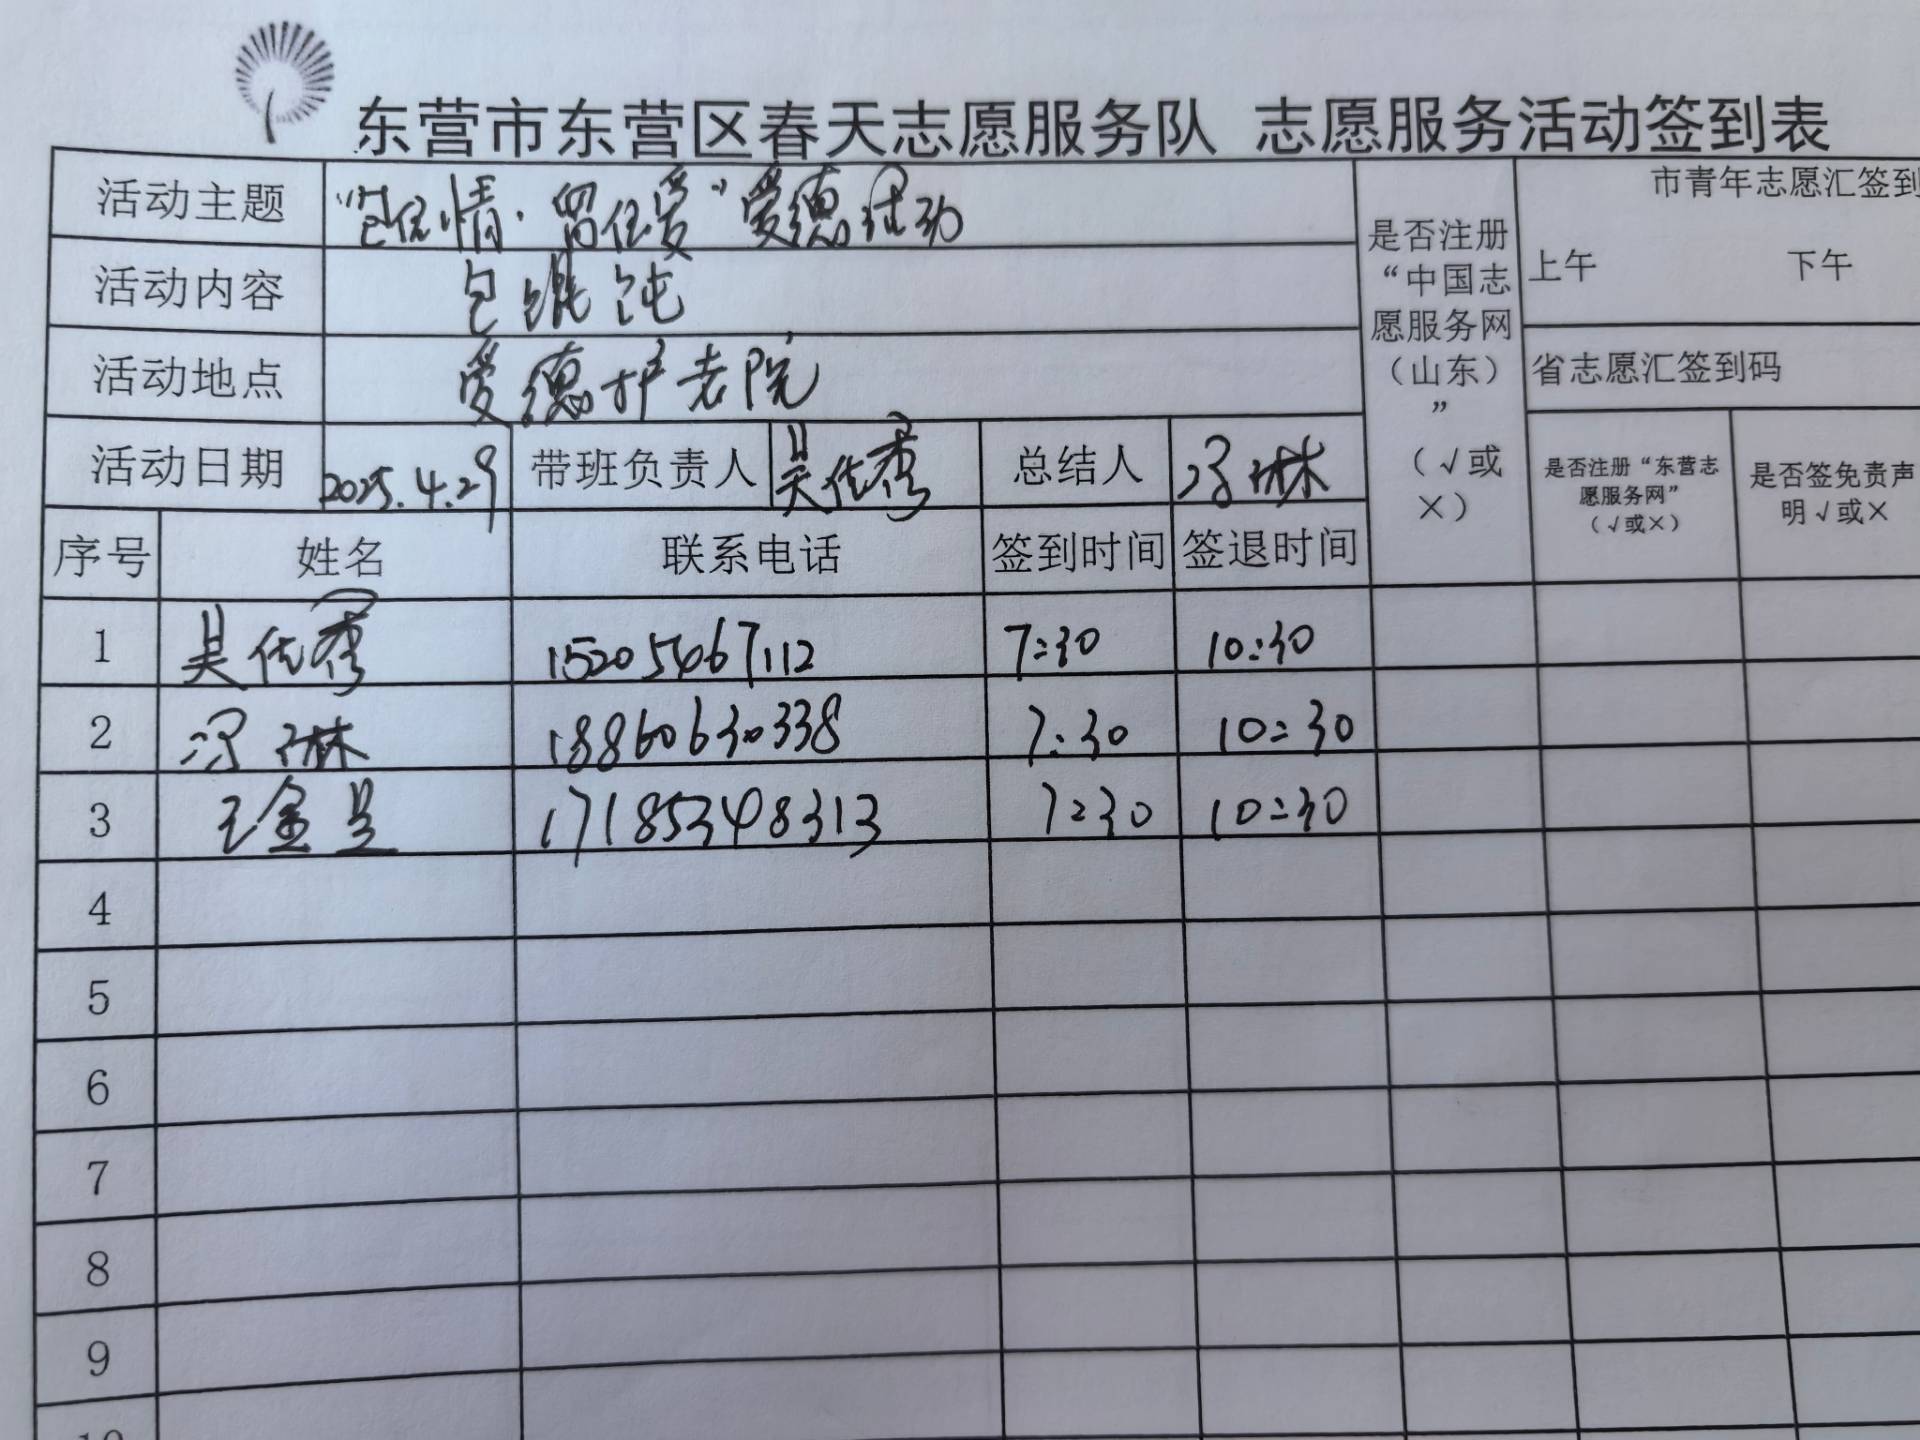 东营市东营区春天志愿服务队 志愿服务活动签到表
活动主题 “包住情·留住爱”爱德活动
活动内容 包馄饨
活动地点 爱德护老院
活动日期 2025.4.29 带班负责人 吴佐秀 总结人 冯琳
是否注册“中国志愿服务网（山东）”（√或×）
市青年志愿汇签到
上午 下午
省志愿汇签到码
是否注册“东营志愿服务网”（√或×）
是否签免责声明√或×
序号 姓名 联系电话 签到时间 签退时间
1 吴佐秀 15205467112 7:30 10:30
2 冯琳 18860630338 7:30 10:30
3 王金 17185348313 7:30 10:30
4
5
6
7
8
9
10